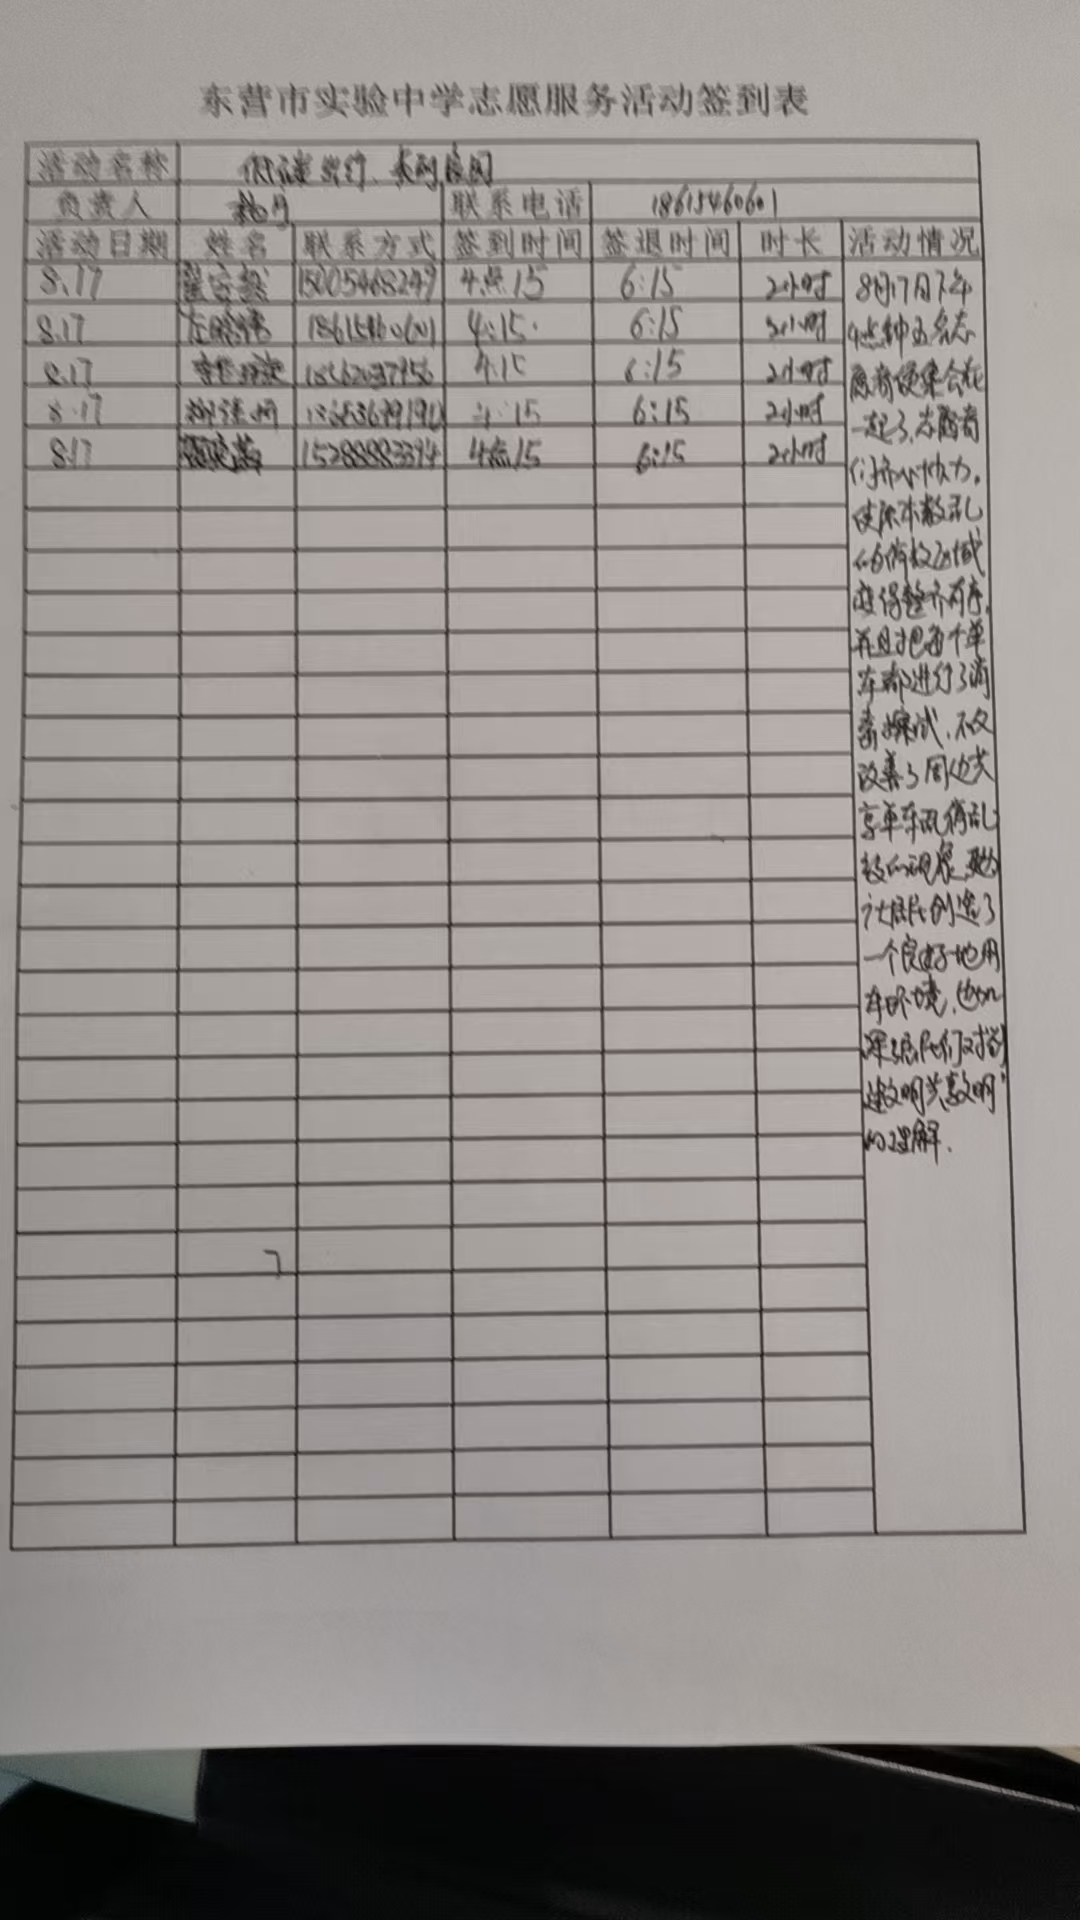 东营市实验中学志愿服务活动签到表
活动名称 低碳出行、
负责人 联系电话 18615460601
活动日期 姓名 联系方式 签到时间 签退时间 时长 活动情况
8.17 15005468249 4点15 6:15 2小时
8.17 18615460601 4:15 6:15 2小时
8.17 4:15 6:15 2小时
8.17 4:15 6:15 2小时
8.17 15288883394 4点15 6:15 2小时
8月17日下午
4点钟五名志
愿者便集合在
一起了,志愿者
们齐心协力,
使原本散乱
的停放区域
变得整齐有序,
并且把每个单
车都进行了消
毒擦拭,不仅
改善了周边共
享单车乱停乱
放的现象,
让居民创造了
一个良好地用
车环境,也加
深了居民们对
文明
的理解.